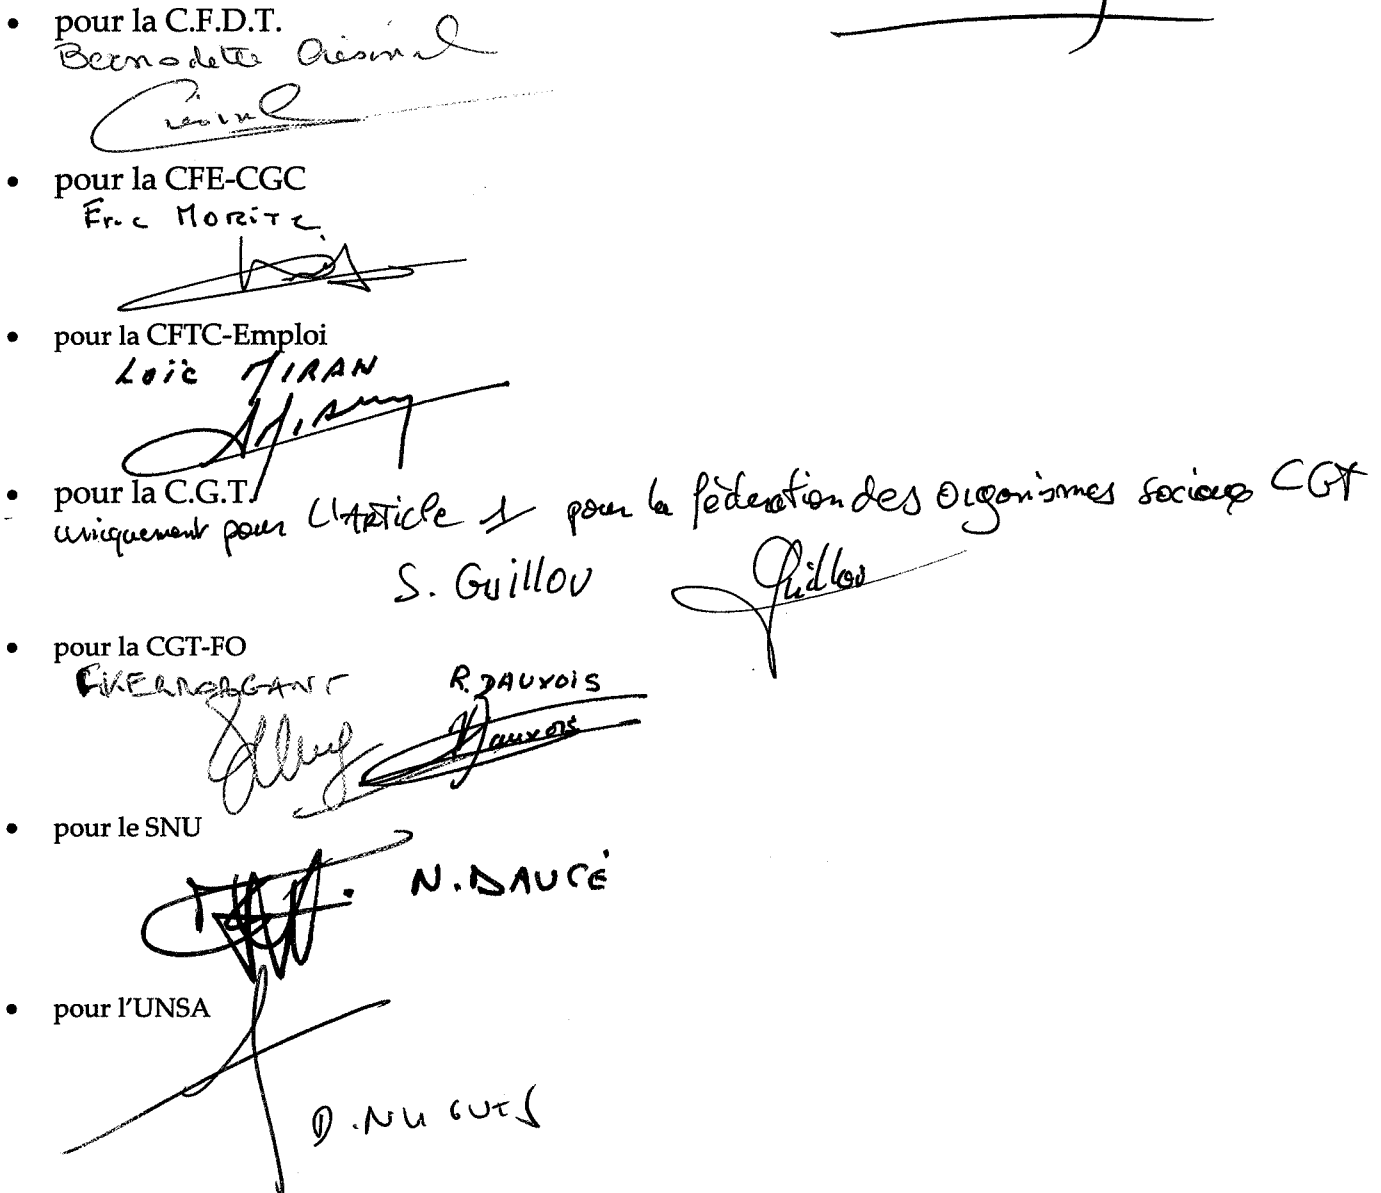 • pour la C.F.D.T.
Bernadette
• pour la CFE-CGC
Eric MORITZ
• pour la CFTC-Emploi
Loïc MIRAN
• pour la C.G.T.
uniquement pour l'Article 1 pour la fédération des Organismes sociaux CGT
S. Guillou Guillou
• pour la CGT-FO
R. DAUXOIS
Dauxois
• pour le SNU
N. DAUCÉ
• pour l'UNSA
D. NUGUES